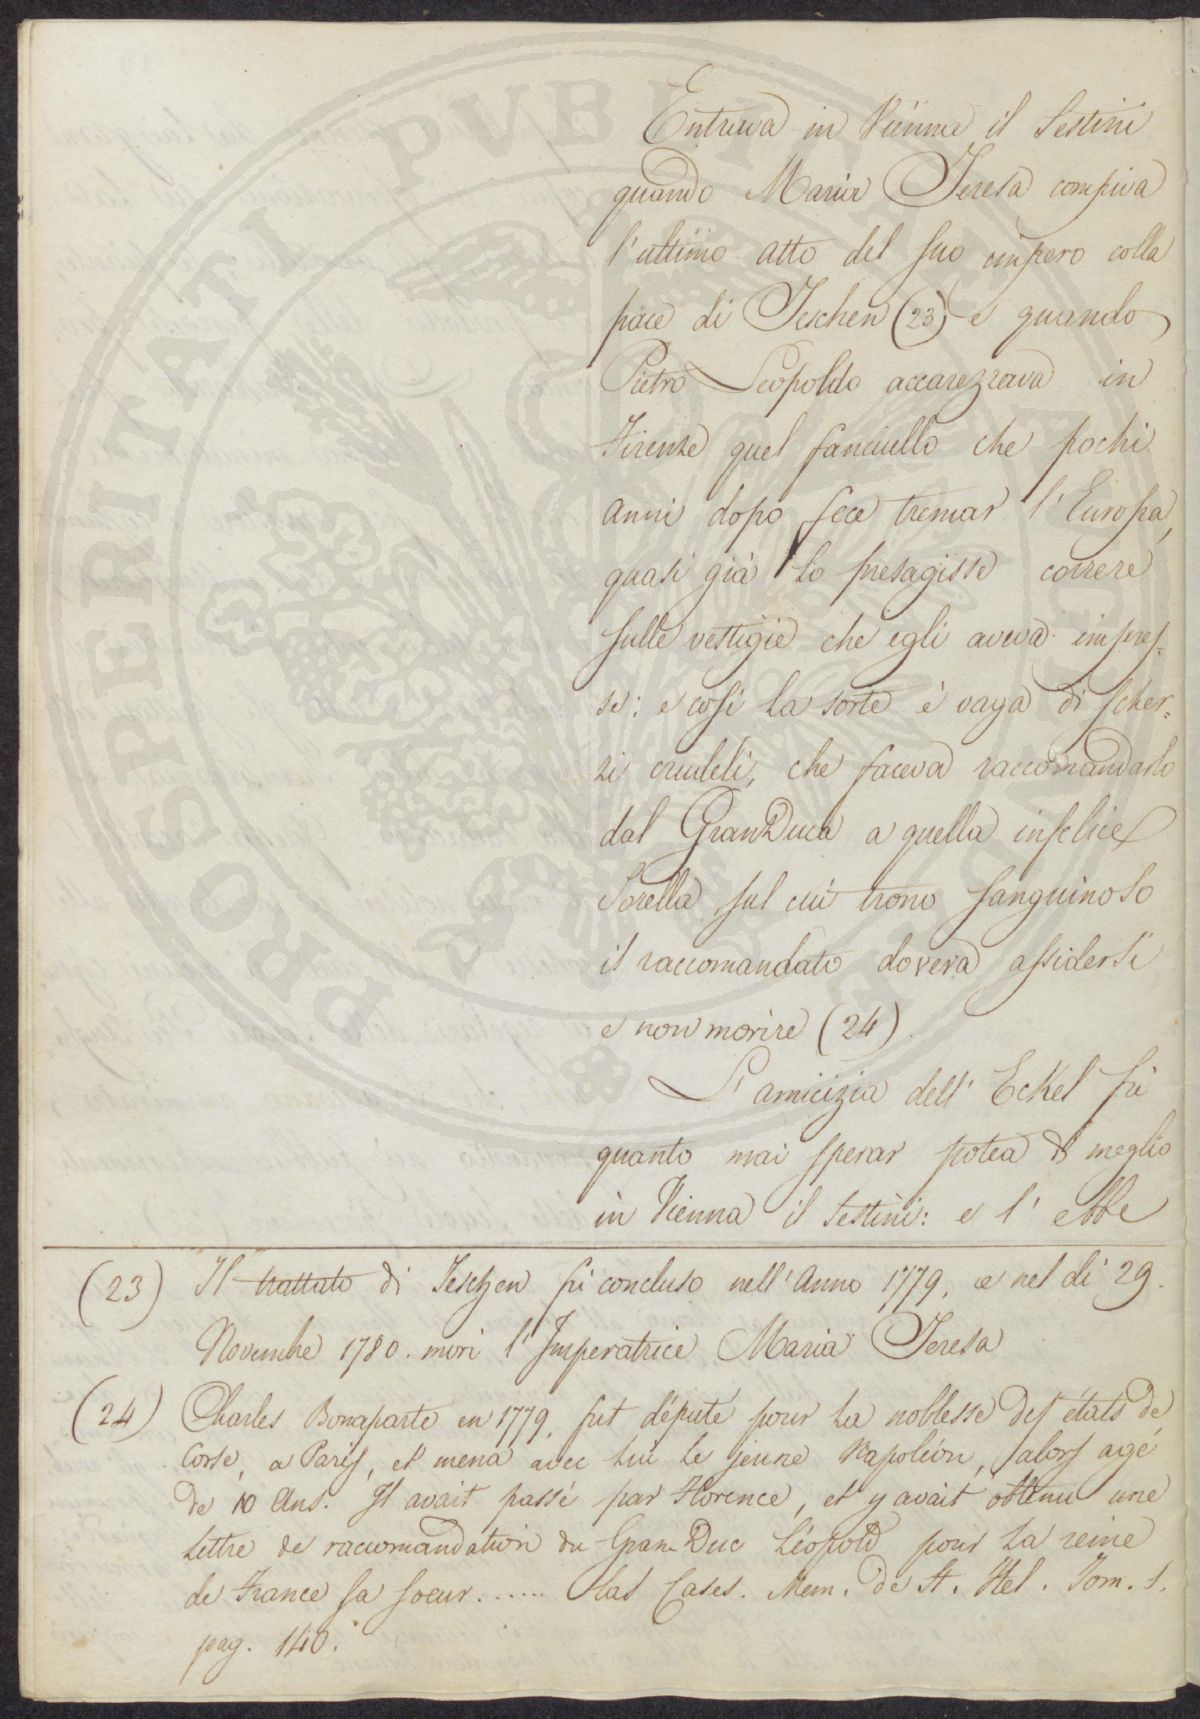 Entrava in Vienna il Sestini
quando Maria Teresa compiva
l'ultimo atto del suo impero colla
pace di Teschen (23) e quando
Pietro Leopoldo accarezzava in
Firenze quel fanciullo che pochi
anni dopo fece tremar l'Europa,
quasi già lo presagisse correre
sulle vestigie che egli aveva impres=
se: e così la sorte è vaga di scher=
zi crudeli, che faceva raccomandarlo
dal GranDuca a quella infelice
Sorella sul cui trono sanguinoso
il raccomandato doveva assidersi
e non morire (24).
L'amicizia dell' Eckel fù
quanto mai sperar potea di meglio
in Vienna il Sestini: e l' ebbe
(23) Il trattato di Teschen fù concluso nell'Anno 1779, e nel dì 29.
Novembre 1780. morì l'Imperatrice Maria Teresa
(24) Charles Bonaparte en 1779, fut député pour la noblesse des états de
Corse, a Paris, et mena avec lui le jeune Napoléon, alors agé
de 10 Ans. Il avait passé par Florence, et y avait obtenu une
lettre de raccomandation du Gran Duc Léopold pour la reine
de France sa soeur...... Las Cases. Mem. de St. Hel. Tom. 1.
pag. 140.
PROSPERITATI PVBLICAE